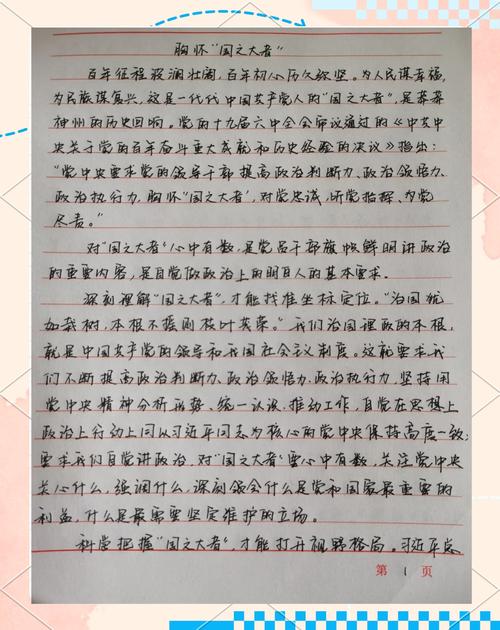 胸怀“国之大者”
百年征程波澜壮阔，百年初心历久弥坚。为人民谋幸福，
为民族谋复兴，这是一代代中国共产党人的“国之大者”，是莽莽
神州的历史回响。党的十九届六中全会审议通过的《中共中
央关于党的百年奋斗重大成就和历史经验的决议》指出：
“党中央要求党的领导干部提高政治判断力、政治领悟力、
政治执行力，胸怀‘国之大者’，对党忠诚、听党指挥、为党
尽责。”
对“国之大者”心中有数，是党员干部旗帜鲜明讲政治
的重要内容，是自觉做政治上的明白人的基本要求。
深刻理解“国之大者”，才能找准坐标定位。“治国犹
如栽树，本根不摇则枝叶茂荣。”我们治国理政的本根，
就是中国共产党的领导和我国社会主义制度。这就要求我
们不断提高政治判断力、政治领悟力、政治执行力，坚持用
党中央精神分析形势、统一认识、推动工作，自觉在思想上
政治上行动上同以习近平同志为核心的党中央保持高度一致；
要求我们自觉讲政治，对“国之大者”要心中有数，关注党中央
关心什么、强调什么，深刻领会什么是党和国家最重要的
利益，什么是最需要坚定维护的立场。
科学把握“国之大者”，才能打开视野格局。习近平总
第 1 页